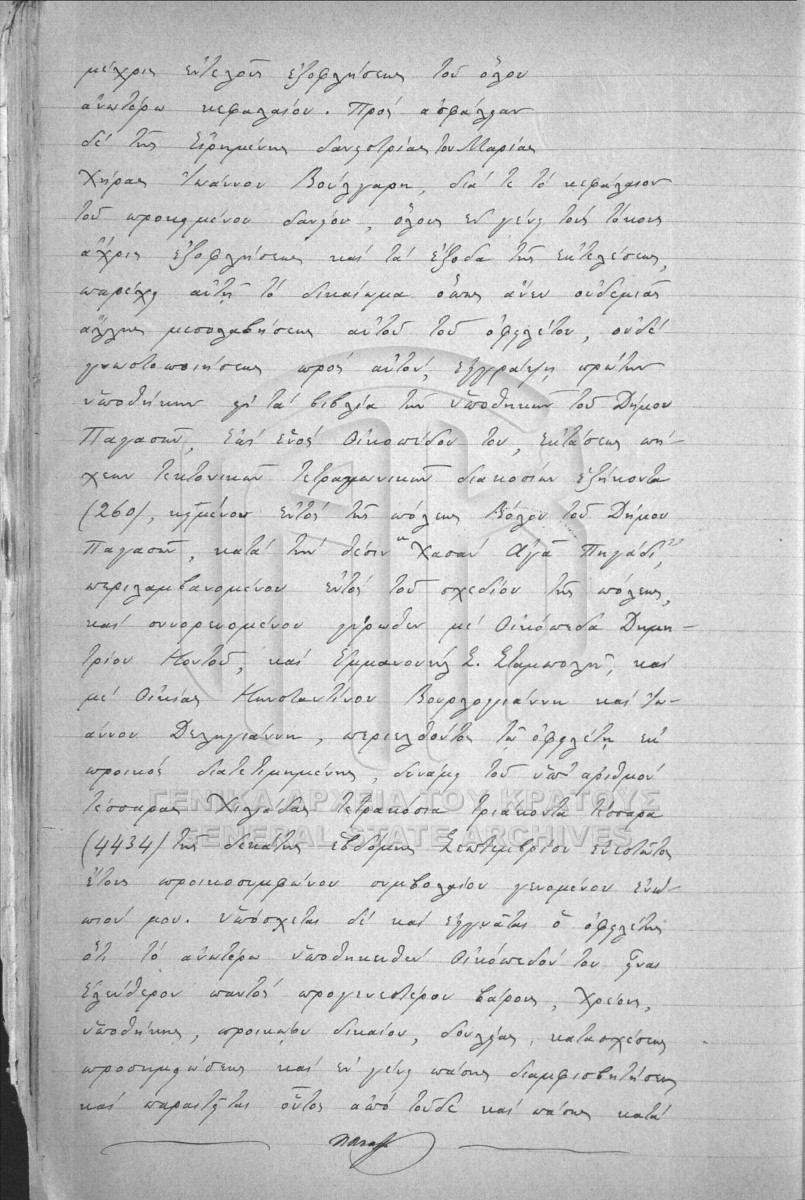 μέχρις ἐντελοῦς ἐξοφλήσεως τοῦ ὅλου
ἀνωτέρω κεφαλαίου. Πρὸς ἀσφάλειαν
δὲ τῆς εἰρημένης δανειστρίας του Μαρίας
Χήρας Ἰωάννου Βούλγαρη, διά τε τὸ κεφάλαιον
τοῦ προκειμένου δανείου, ὅλους ἐν γένει τοὺς τόκους
ἄχρις ἐξοφλήσεως καὶ τὰ ἔξοδα τῆς ἐκτελέσεως,
παρέχει αὐτῇ τὸ δικαίωμα ὅπως ἄνευ οὐδεμιᾶς
ἄλλης μεσολαβήσεως αὐτοῦ τοῦ ὀφειλέτου, οὐδὲ
γνωστοποιήσεως πρὸς αὐτόν, ἐγγράψῃ πρώτην
ὑποθήκην εἰς τὰ βιβλία τῶν ὑποθηκῶν τοῦ Δήμου
Παγασῶν, ἐπὶ ἑνὸς οἰκοπέδου του, ἐκτάσεως πή-
χεων τεκτονικῶν τετραγωνικῶν διακοσίων ἑξήκοντα
(260), κειμένου ἐντὸς τῆς πόλεως Βόλου τοῦ Δήμου
Παγασῶν, κατὰ τὴν θέσιν "Χασὰν Ἀγᾶ Πηγάδι",
περιλαμβανομένου ἐντὸς τοῦ σχεδίου τῆς πόλεως,
καὶ συνορευομένου γύρωθεν μὲ οἰκόπεδα Δημη-
τρίου Κοντοῦ, καὶ Ἐμμανουὴλ Σ. Σταμπολῆ, καὶ
μὲ οἰκίας Κωνσταντίνου Βουρλογιάννη καὶ Ἰω-
άννου Δεληγιάννη, περιελθόντος τῷ ὀφειλέτῃ ἐκ
προικὸς διατετιμημένης, δυνάμει τοῦ ὑπ' ἀριθμὸν
τέσσαρας χιλιάδας τετρακόσια τριάκοντα τέσσαρα
(4434) τῆς δεκάτης ἑβδόμης Σεπτεμβρίου ἐνεστῶτος
ἔτους προικοσυμφώνου συμβολαίου γενομένου ἐνώ-
πιόν μου. Ὑπόσχεται δὲ καὶ ἐγγυᾶται ὁ ὀφειλέτης
ὅτι τὸ ἀνωτέρω ὑποθηκευθὲν οἰκόπεδόν του εἶναι
ἐλεύθερον παντὸς προγενεστέρου βάρους, χρέους,
ὑποθήκης, προικῴου δικαίου, δουλείας, κατασχέσεως
προσημειώσεως καὶ ἐν γένει πάσης διαμφισβητήσεως
καὶ παραιτεῖται οὗτος ἀπὸ τοῦδε καὶ πάσης κατὰ
ΓΕΝΙΚΑ ΑΡΧΕΙΑ ΤΟΥ ΚΡΑΤΟΥΣ
GENERAL STATE ARCHIVES